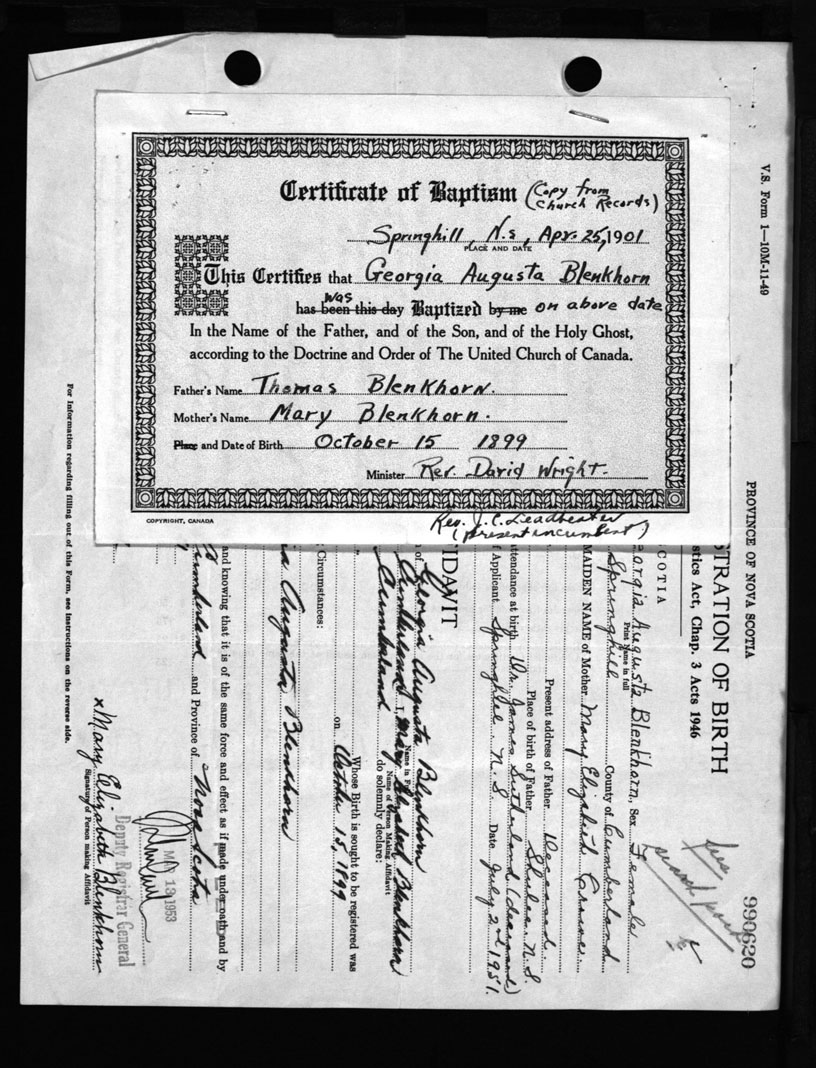 Certificate of Baptism (Copy from Church Records)
Springhill, N.S, Apr. 25, 1901
PLACE AND DATE
This Certifies that Georgia Augusta Blenkhorn
has was been this day Baptized by me on above date
In the Name of the Father, and of the Son, and of the Holy Ghost,
according to the Doctrine and Order of The United Church of Canada.
Father's Name Thomas Blenkhorn.
Mother's Name Mary Blenkhorn.
Place and Date of Birth October 15 1899
Minister Rev. David Wright.
COPYRIGHT, CANADA
Rev. J. C. Leadbeater
(present incumbent)
V.S. Form 1—10M-11-49
990620
PROVINCE OF NOVA SCOTIA
STRATION OF BIRTH
stics Act, Chap. 3 Acts 1946
COTIA
eorgia Augusta Blenkhorn, Sex Female
Print Name in full
Springhill County of Cumberland
MAIDEN NAME of Mother Mary Elizabeth
Present address of Father Deceased.
Place of birth of Father Shulee N.S.
ttendance at birth Dr. James Sutherland (deceased)
f Applicant Springhill N.S. Date July 2nd 1951.
IDAVIT
of Georgia Augusta Blenkhorn
Name in Full
Cumberland I, Mary Elizabeth Blenkhorn
Name of Person Making Affidavit
Cumberland do solemnly declare:
Whose Birth is sought to be registered was
on October 15, 1899
Circumstances:
ia Augusta Blenkhorn
and knowing that it is of the same force and effect as if made under oath and by
Cumberland and Province of Nova Scotia
MAY 13 1953
Deputy Registrar General
x Mary Elizabeth Blenkhorn
Signature of Person making Affidavit
For Information regarding filling out of this Form, see Instructions on the reverse side.